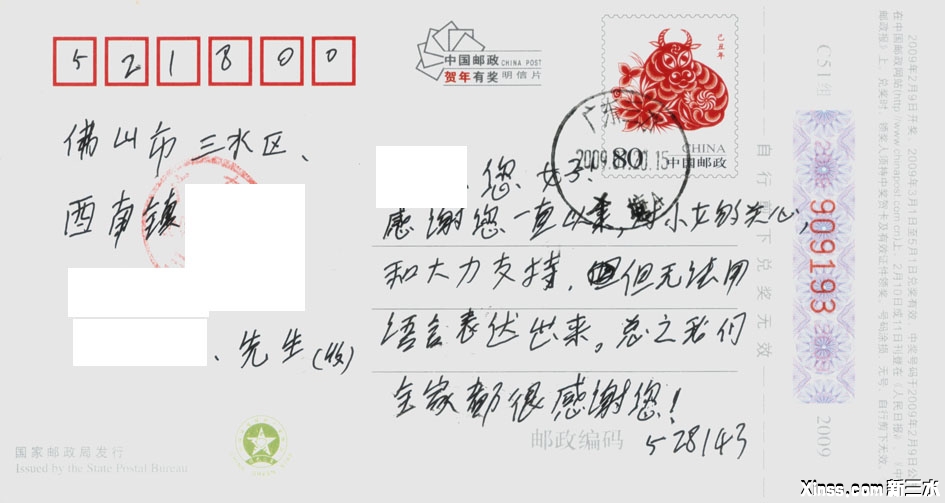 521800
中国邮政 CHINA POST
贺年有奖 明信片
己丑年
2009
CHINA
80 中国邮政
佛山市三水区、
西南镇
先生(收)
您女子!
感谢您一直以来,对小女的关心,
和大力支持,但无法用
语言表达出来,总之我们
全家都很感谢您!
邮政编码 528143
国家邮政局发行
Issued by the State Postal Bureau
自行剪下兑奖无效
C51组
909193
2009
2009年2月9日开奖
Xinss.com新三水